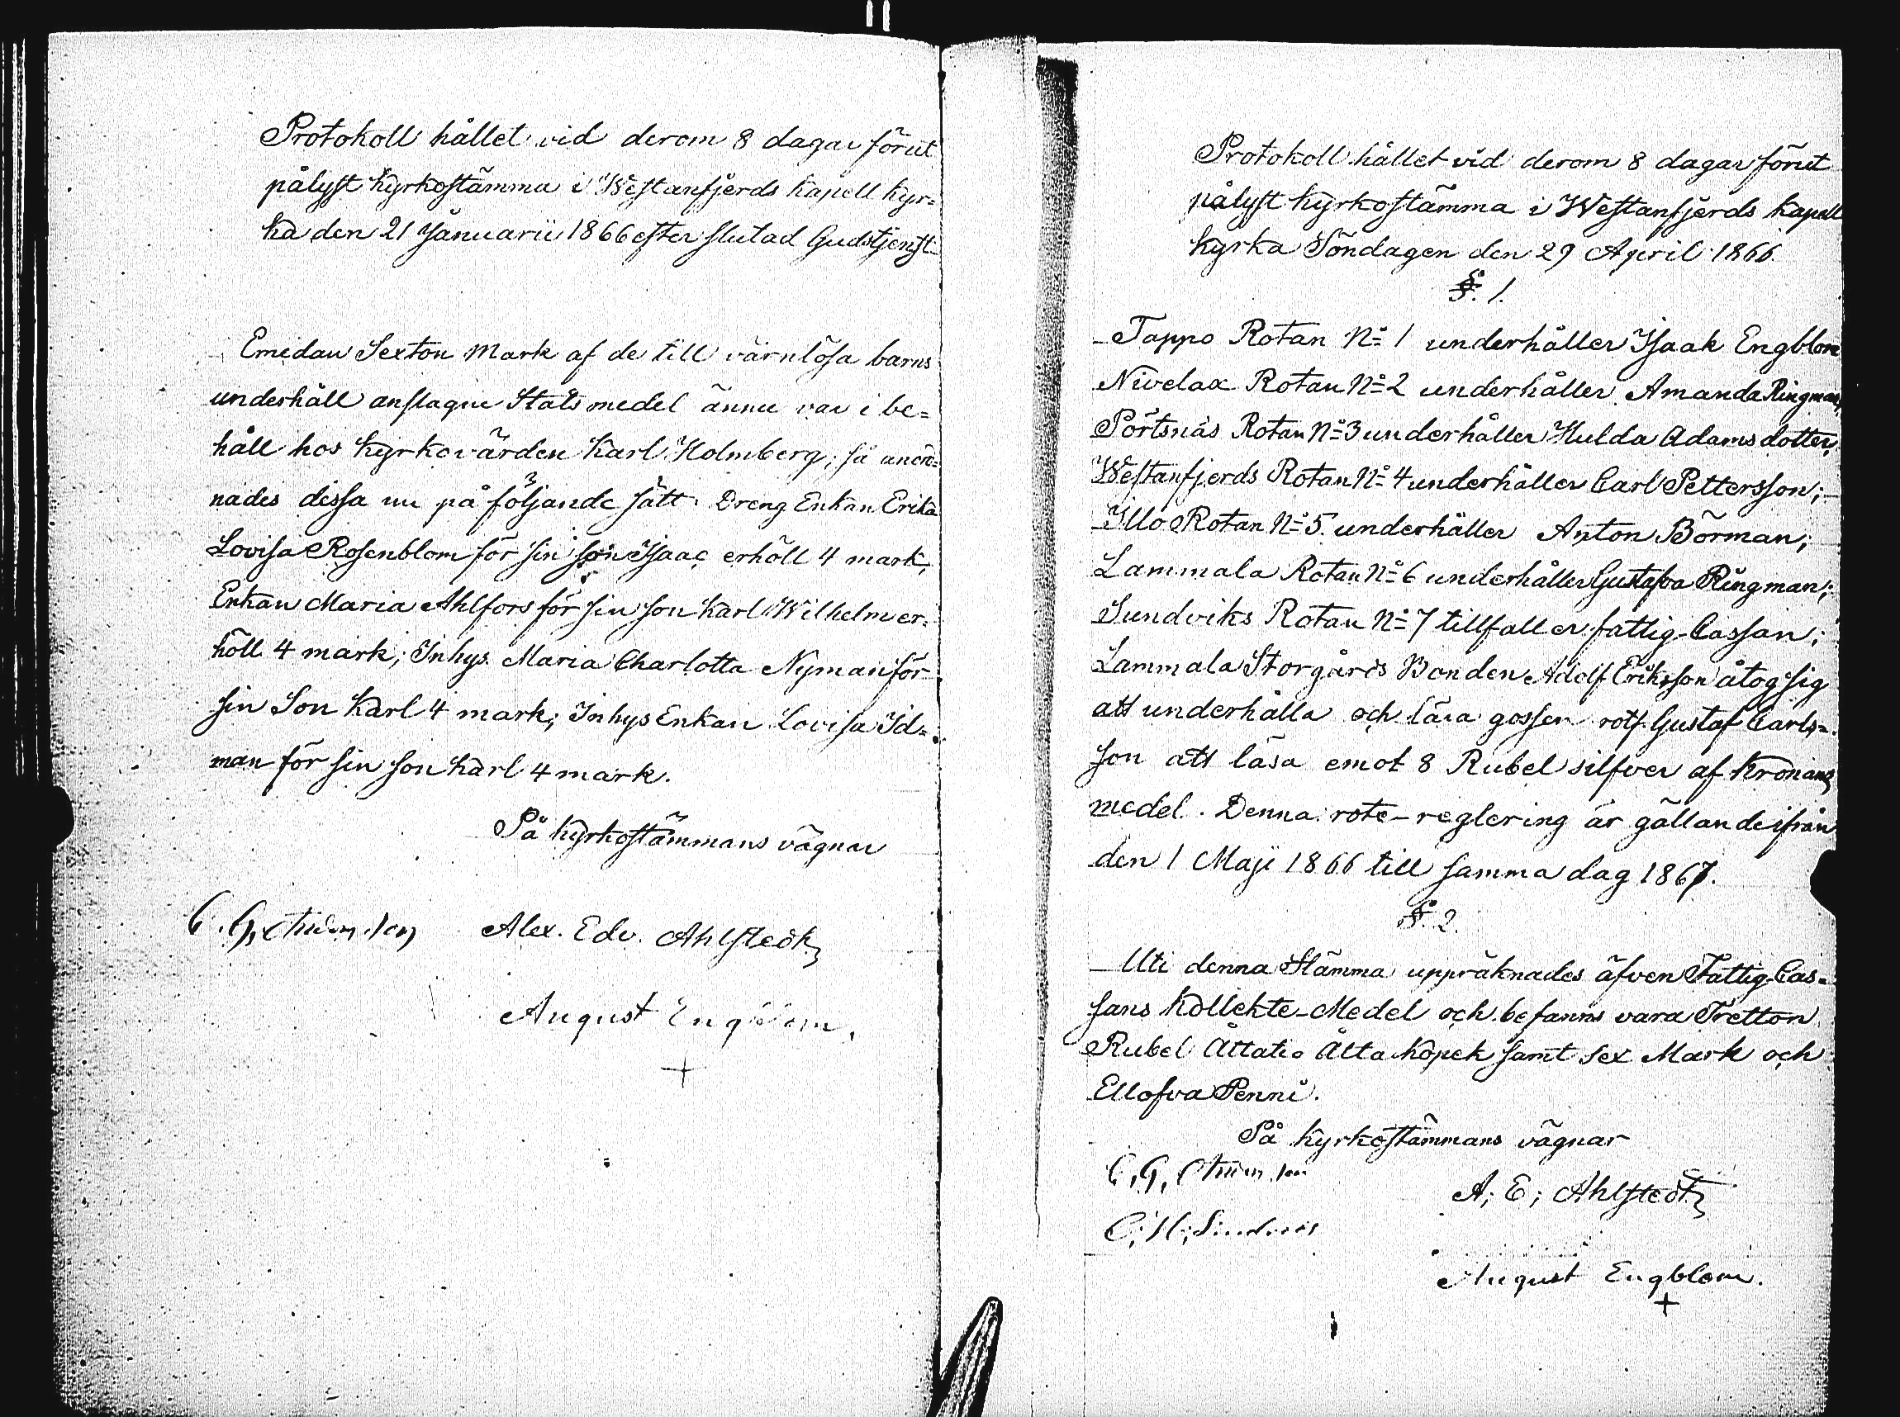 Protokoll hållet vid derom 8 dagar förut
pålyst kyrkostämma i Westanfjerds kapell kyr=
ka den 21 Januarii 1866 efter slutad Gudstjenst
Emedan Sexton Mark af de till värnlösa barns
underhåll anslagne Statsmedel ännu var i be=
håll hos kyrkovärden Karl Holmberg, så anord=
nades dessa nu på följande sätt: Dreng Enkan Erika
Lovisa Rosenblom för sin son Isaac erhöll 4 mark,
Enkan Maria Ahlfors för sin son Karl Wilhelm er=
höll 4 mark; Inhys. Maria Charlotta Nyman för
sin Son Karl 4 mark; Inhys Enkan Lovisa Id=
man för sin son Karl 4 mark.
På kyrkostämmans vägnar
C. G. Alex. Edv. Ahlstedt
August Engblom.
+
Protokoll hållet vid derom 8 dagar förut
pålyst kyrkostämma i Westanfjerds kapell
kyrka Söndagen den 29 April 1866.
§. 1.
Tappo Rotan No 1 underhåller Isaak Engblom
Nivelax Rotan No 2 underhåller Amanda Ringman,
Pörtsnäs Rotan No 3 underhåller Hulda Adamsdotter,
Westanfjerds Rotan No 4 underhåller Carl Pettersson;
Illo Rotan No 5. underhåller Anton Börman;
Lammala Rotan No 6 underhåller Gustafva Ringman;
Sundviks Rotan No 7 tillfaller fattig-Cassan;
Lammala Storgårds Bonden Adolf Eriksson åtog sig
att underhålla och lära gossen Gustaf Carls=
son att läsa emot 8 Rubel silfver af Kronans
medel. Denna rote-reglering är gällande ifrån
den 1 Maji 1866 till samma dag 1867.
§. 2.
Uti denna Stämma uppräknades äfven Fattig-Cas=
sans Kollekte-Medel och befanns vara Tretton
Rubel Åttatio Åtta kopek samt sex Mark och
Ellofva Penni.
På kyrkostämmans vägnar
C. G.
A; E; Ahlstedt
C; H;
August Engblom.
+